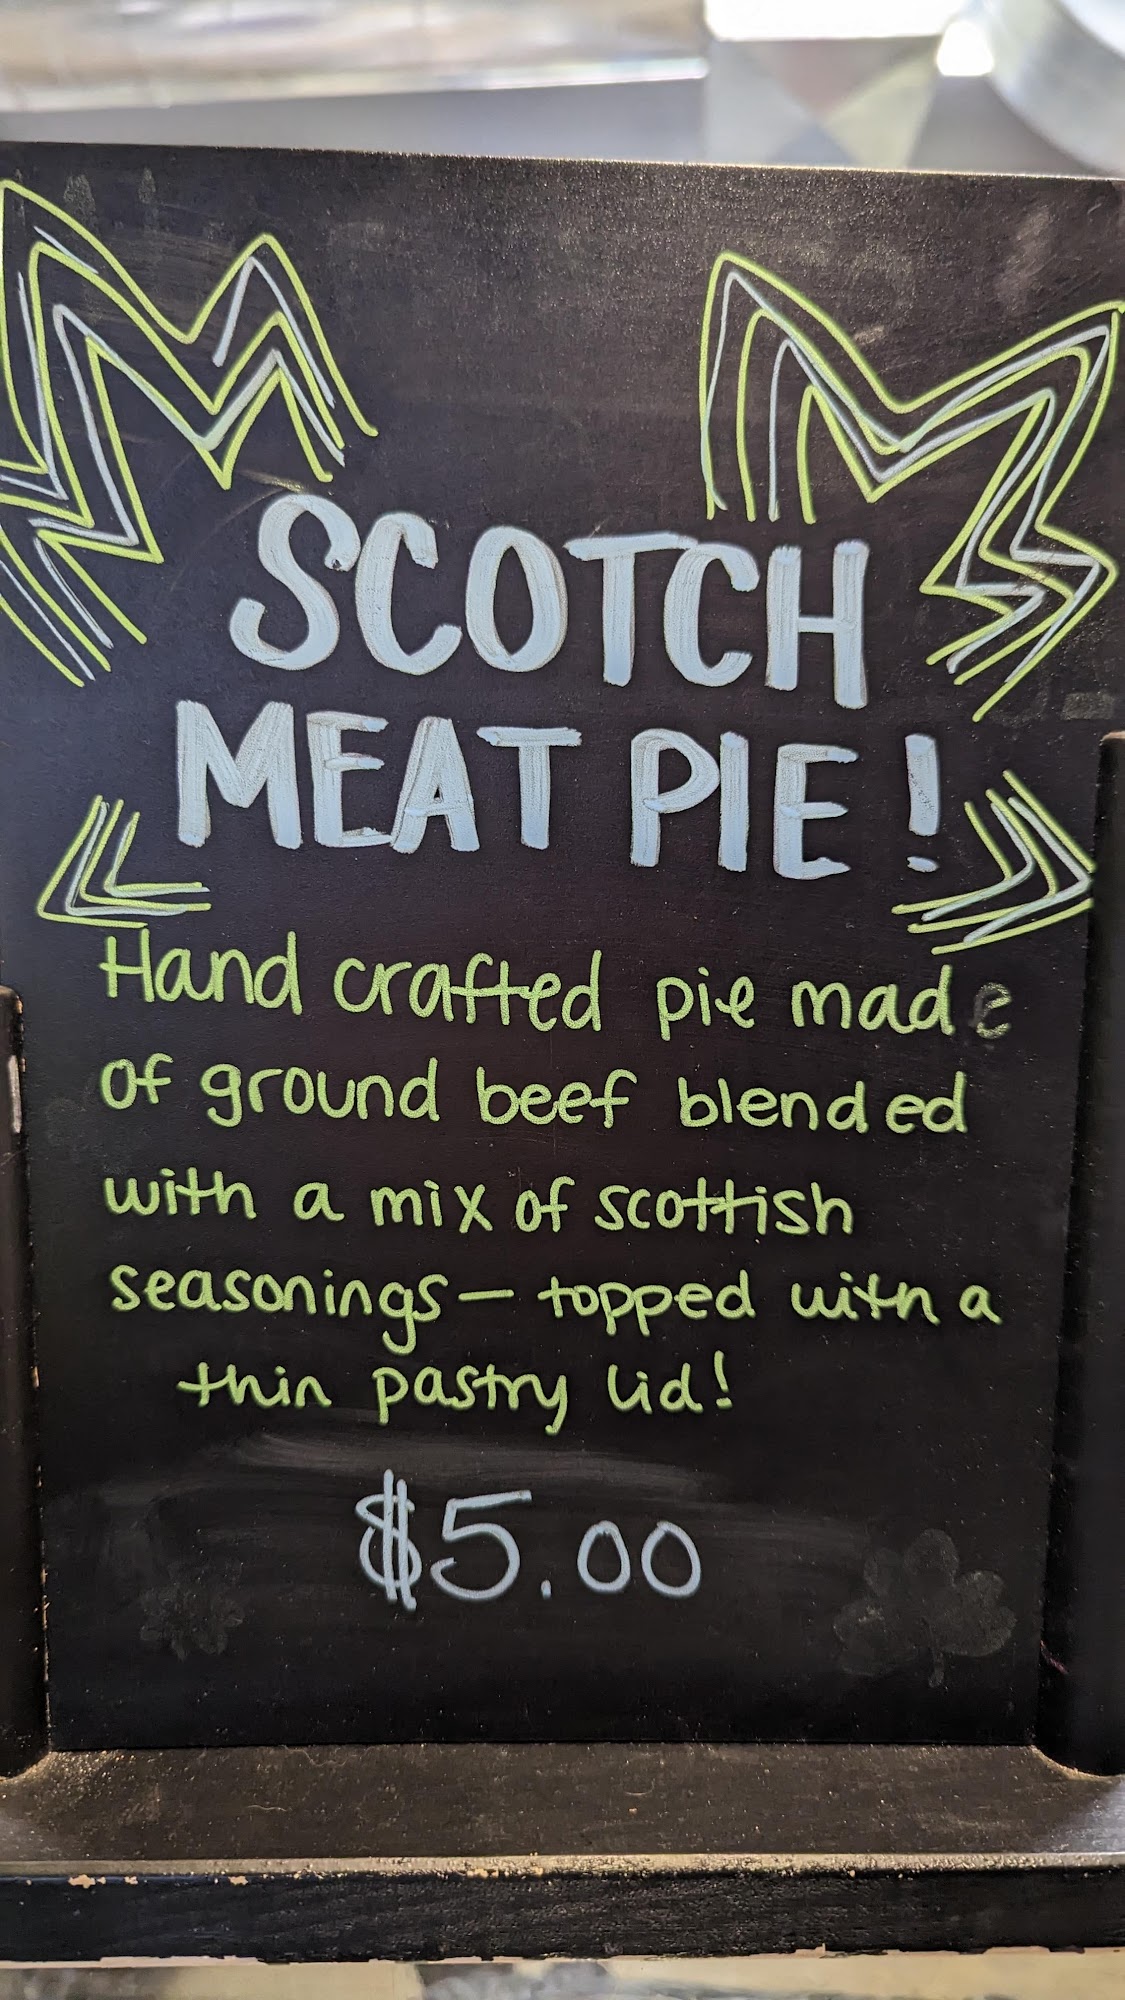 SCOTCH
MEAT PIE!
Hand crafted pie made
of ground beef blended
with a mix of scottish
seasonings — topped with a
thin pastry lid!
$5.00